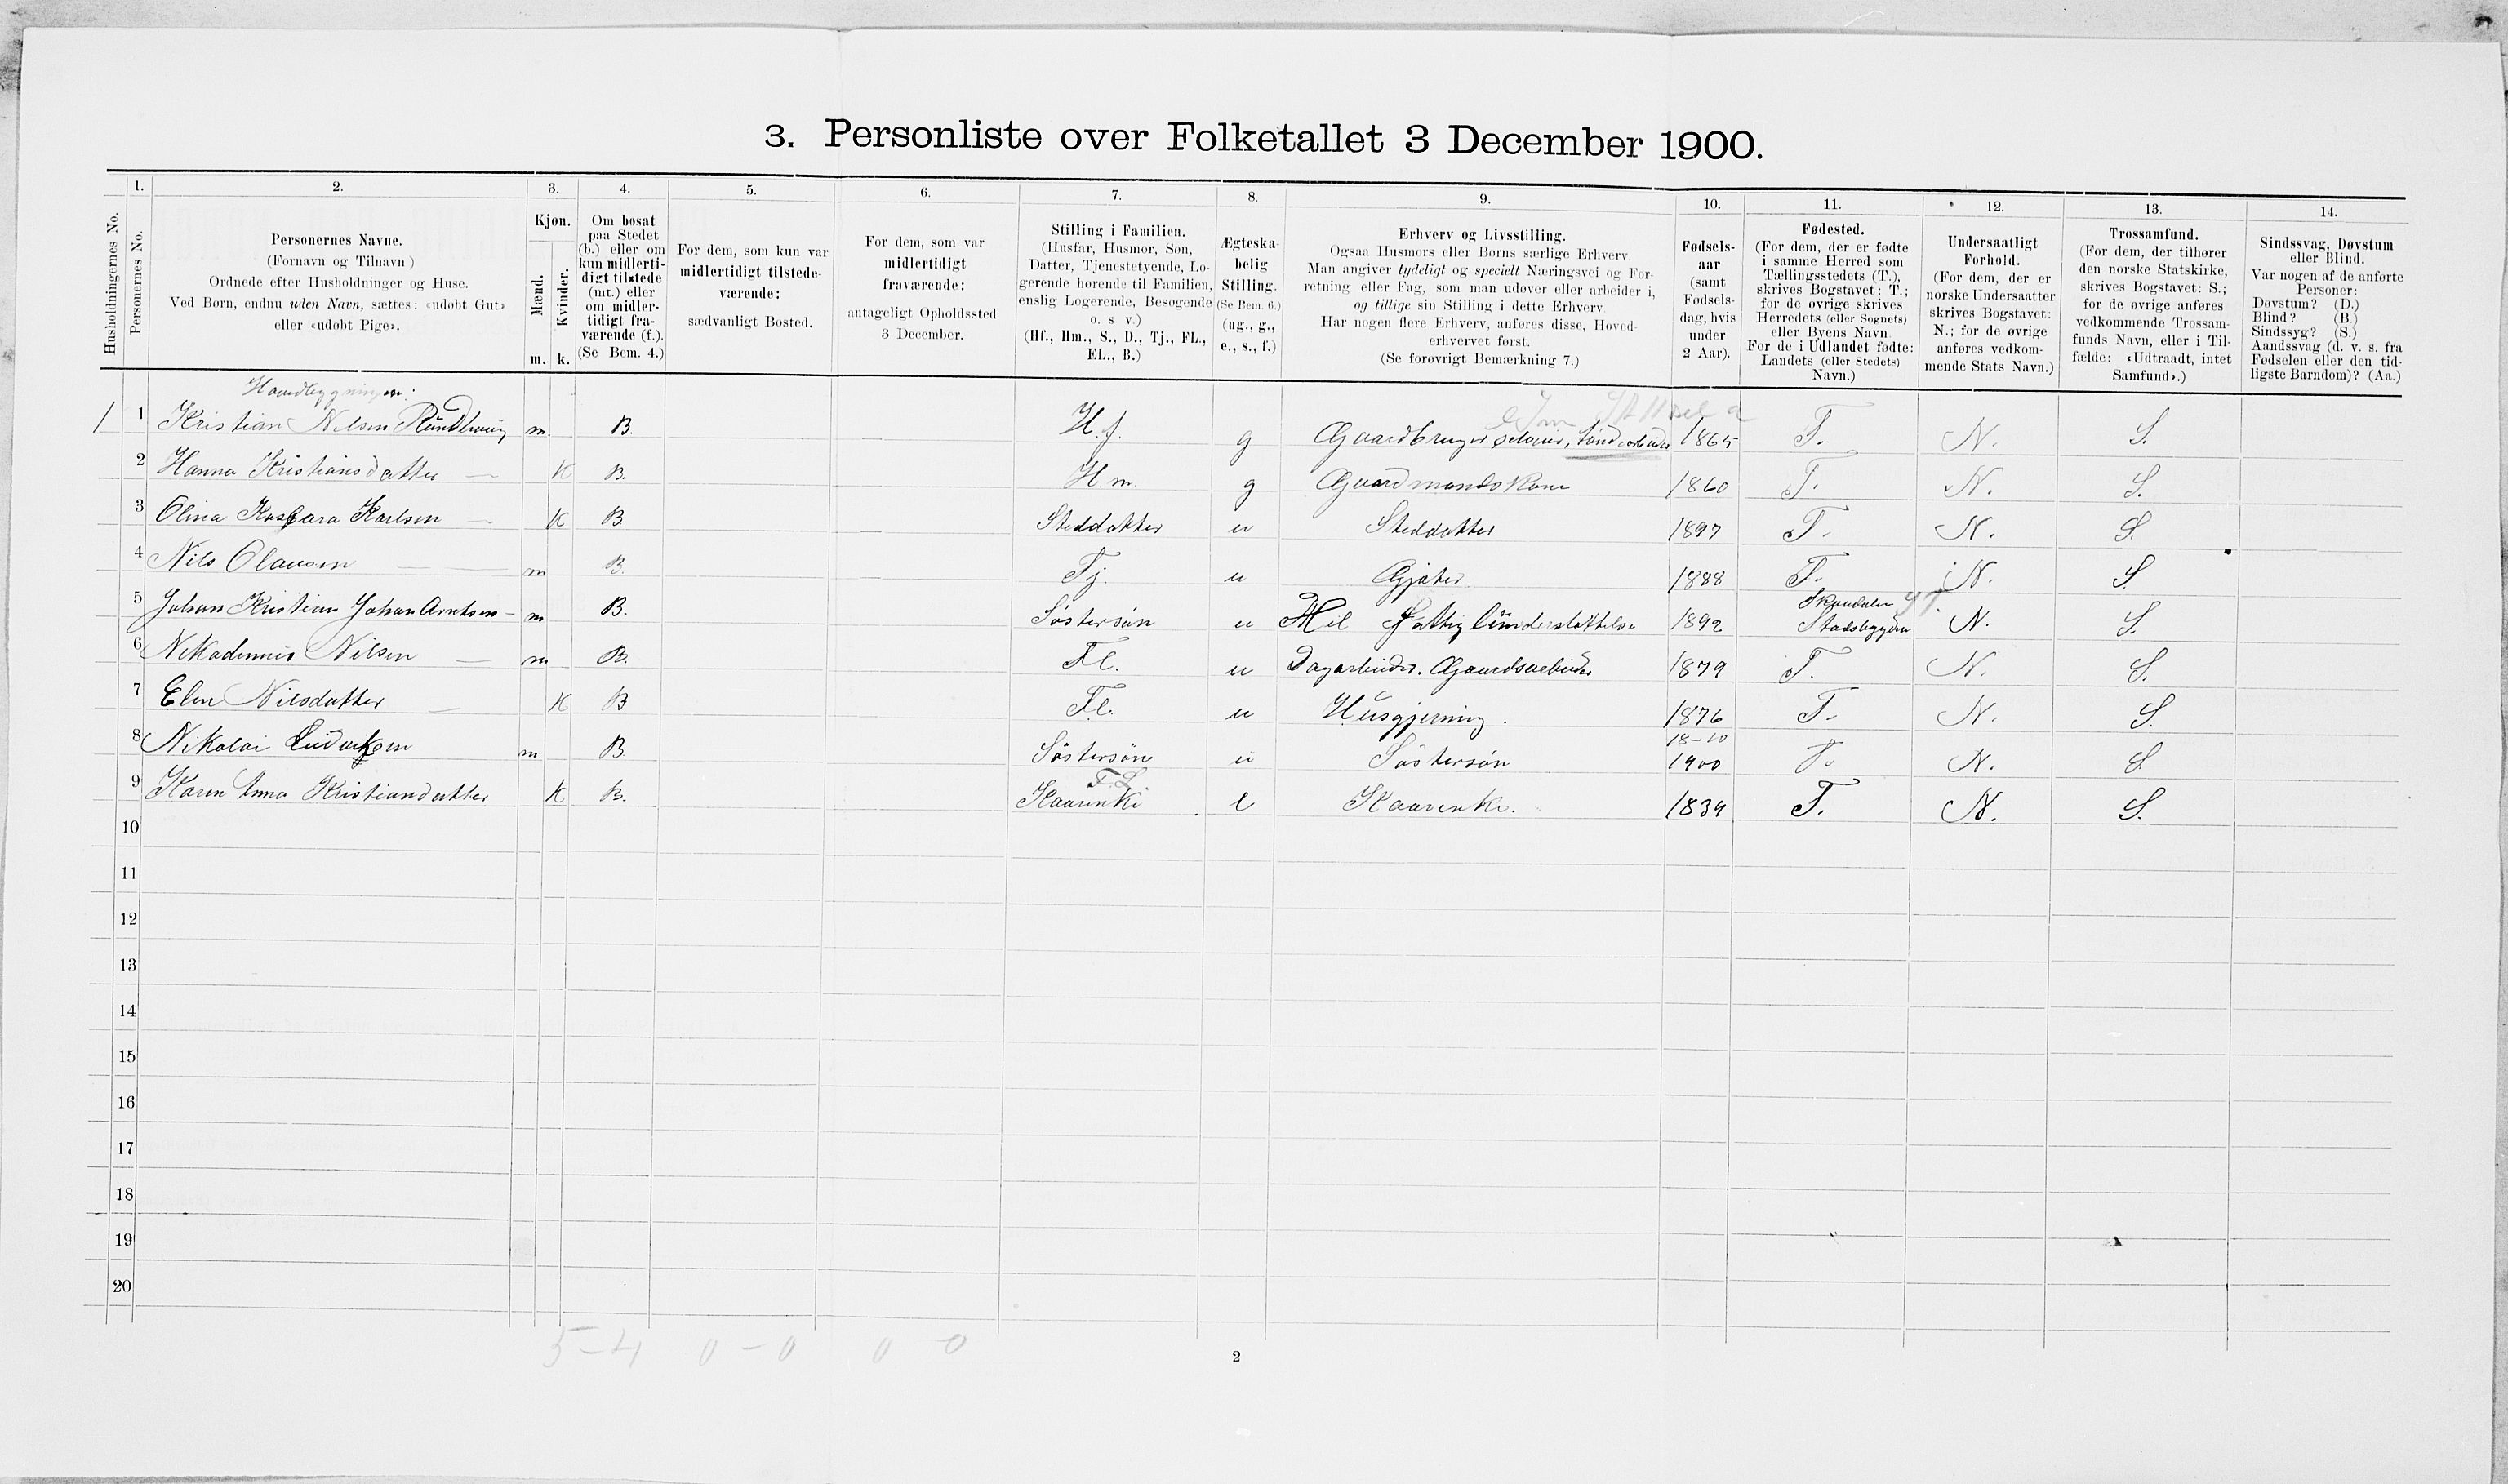 3. Personliste over Folketallet 3 December 1900.
1. 2. 3. 4. 5. 6. 7. 8. 9. 10. 11. 12. 13. 14.
Husholdningernes No.
Personernes No.
Personernes Navne.
(Fornavn og Tilnavn)
Ordnede efter Husholdninger og Huse.
Ved Børn, endnu uden Navn, sættes: «udøbt Gut»
eller «udøbt Pige».
Kjøn.
Mænd.
Kvinder.
m. k.
Om bosat
paa Stedet
(b.) eller om
kun midlerti-
digt tilstede
(mt.) eller
om midler-
tidigt fra-
værende (f.).
(Se Bem. 4.)
For dem, som kun var
midlertidigt tilstede-
værende:
sædvanligt Bosted.
For dem, som var
midlertidigt
fraværende:
antageligt Opholdssted
3 December.
Stilling i Familien.
(Husfar, Husmor, Søn,
Datter, Tjenestetyende, Lo-
gerende hørende til Familien,
enslig Logerende, Besøgende
o. s v.)
(Hf., Hm., S., D., Tj., FL.,
EL., B.)
Ægteska-
belig
Stilling.
(Se Bem. 6.)
(ug., g.,
e., s., f.)
Erhverv og Livsstilling.
Ogsaa Husmors eller Børns særlige Erhverv.
Man angiver tydeligt og specielt Næringsvei og For-
retning eller Fag, som man udøver eller arbeider i,
og tillige sin Stilling i dette Erhverv
Har nogen flere Erhverv, anføres disse, Hoved-
erhvervet først.
(Se forøvrigt Bemærkning 7.)
Fødsels-
aar
(samt
Fødsels-
dag, hvis
under
2 Aar).
Fødested.
(For dem, der er fødte
i samme Herred som
Tællingsstedets (T.),
skrives Bogstavet: T.;
for de øvrige skrives
Herredets (eller Sognets)
eller Byens Navn
For de i Udlandet fødte:
Landets (eller Stedets)
Navn.)
Undersaatligt
Forhold.
(For dem, der er
norske Undersaatter
skrives Bogstavet:
N.; for de øvrige
anføres vedkom-
mende Stats Navn.)
Trossamfund.
(For dem, der tilhører
den norske Statskirke,
skrives Bogstavet: S.;
for de øvrige anføres
vedkommende Trossam-
funds Navn, eller i Til-
fælde: «Udtraadt, intet
Samfund».)
Sindssvag, Døvstum
eller Blind.
Var nogen af de anførte
Personer:
Døvstum? (D.)
Blind? (B.)
Sindssyg? (S.)
Aandssvag (d. v. s. fra
Fødselen eller den tid-
ligste Barndom)? (Aa.)
Hovedbygningen:
1 1 Kristian Nilsen m. B. H.f. g Gaardbruger selveier, 1865 T. N. S.
2 Hanna Kristiansdatter — K B. H.m. g Gaardmandskone 1860 T. N. S.
3 Olina Karlsen — K B Steddatter u Steddatter 1897 T. N. S.
4 Nils Olausen — m B. Tj. u Gjæter 1888 T. N. S
5 Johan Kristian Johan Arntsen — m B. Söstersön u Fattigunderstöttelse 1892 Skaudalen Stadsbygden N. S.
6 Nekodemus Nilsen — m B. Fl. u Dagarbeider. Gaardsarbeider 1879 T. N. S.
7 Elen Nilsdatter — K B Fl. u Husgjerning. 1876 T. N. S.
8 Nikolai Ludviksen m B Söstersön u Söstersön 18-10 1900 T. N. S
9 Karen Anna Kristiandatter K B. F.L. Kaarenke e Kaarenke. 1839 T. N. S.
10
11
12
13
14
15
16
17
18
19
20
5-4 0-0 0 0
2